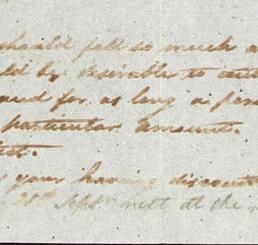 should fall so much a
ld be desirable to
and for as long a
particular amount.
your having discount
Sept. next at the